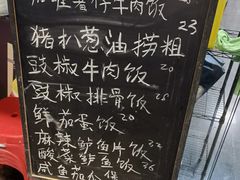 薯仔牛肉饭
23
猪扒葱油捞粗
豉椒牛肉饭 20
豆椒排骨饭
鲜茄蛋饭 20
麻辣鲈鱼片饭
酸菜鲈鱼饭 26
咸鱼茄仔保